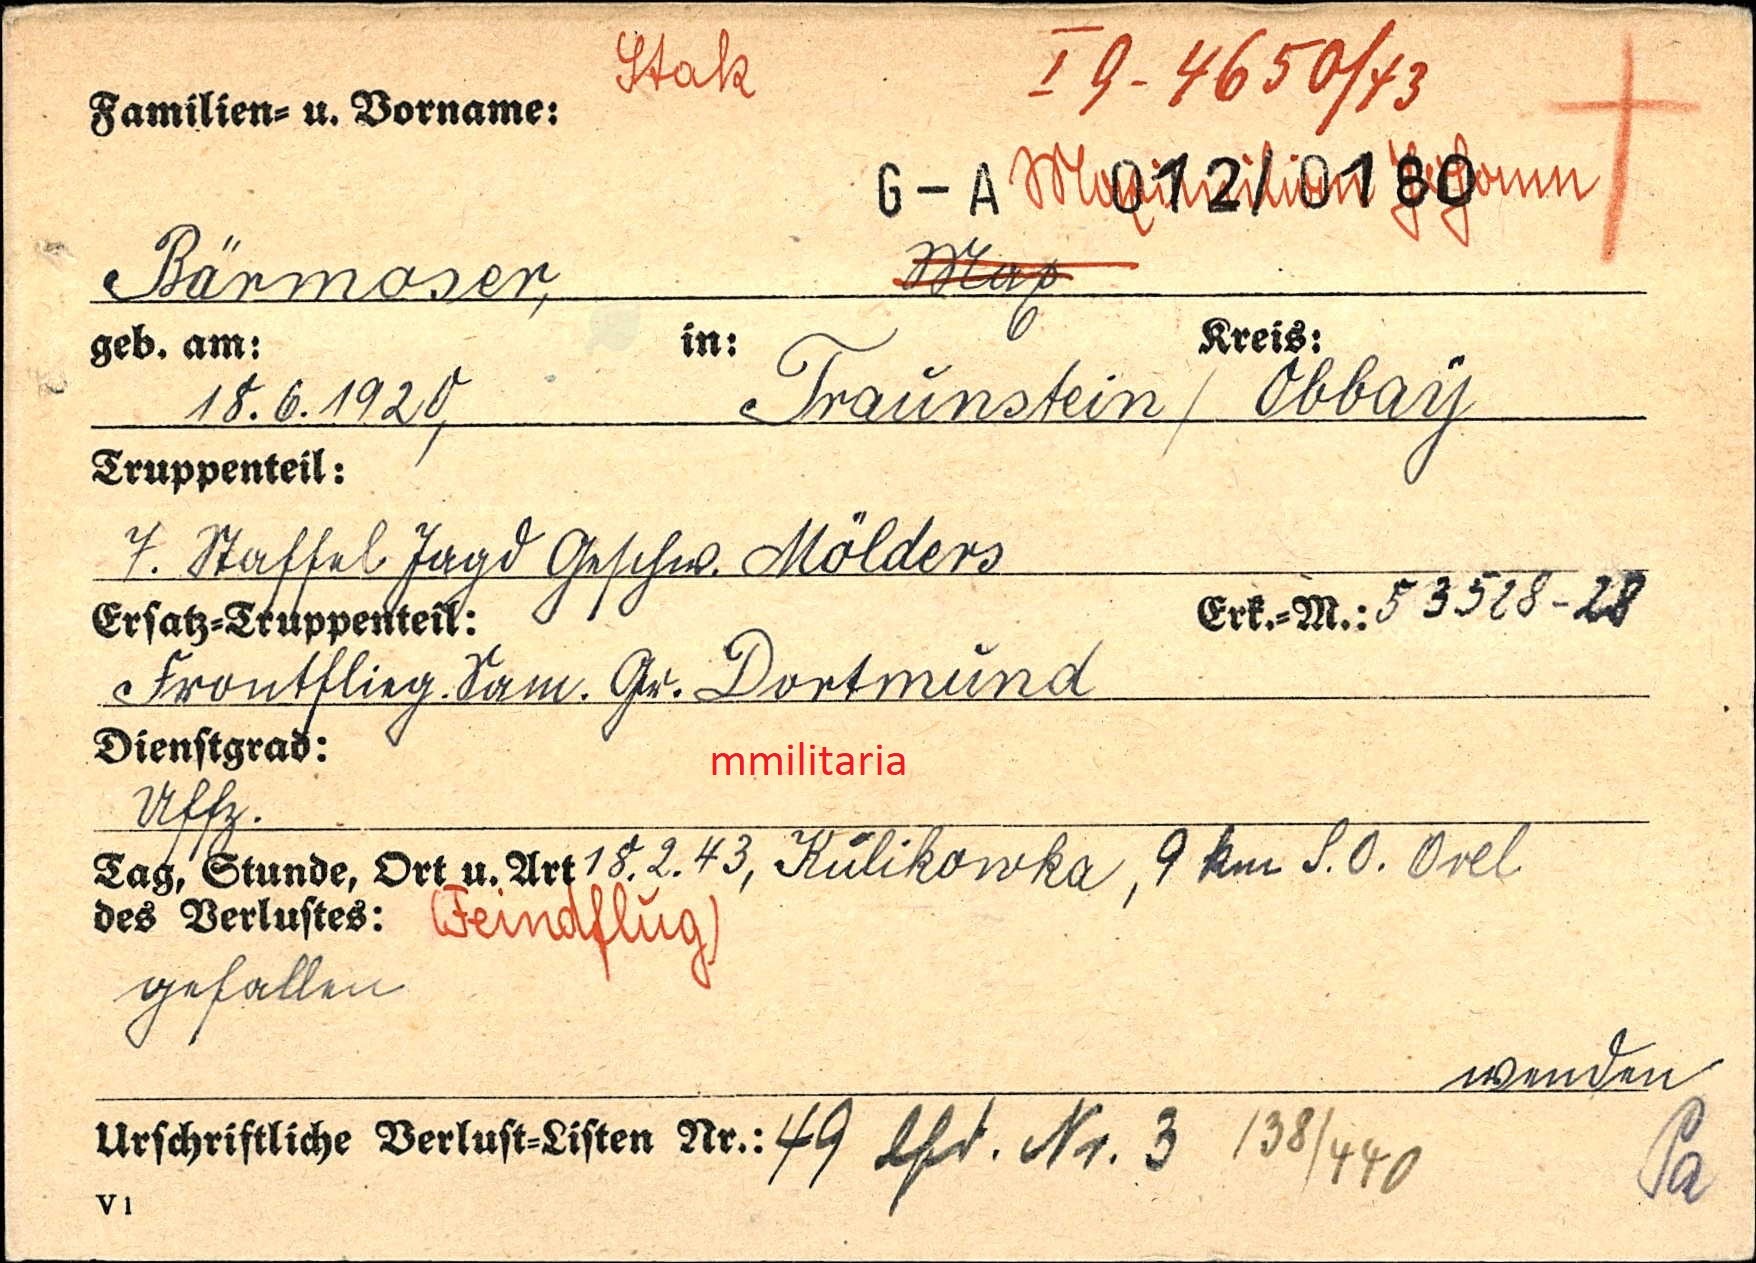 Stak
I 9-4650/43
Familien= u. Vorname:
G-A 012/0180
Maximilian Johann
Bärmoser, Max
geb. am: in: Kreis:
18.6.1920, Traunstein / Obbay
Truppenteil:
7. Staffel Jagd Geschw. Mölders
Ersatz=Truppenteil: Erk.=M.: 53528-28
Frontflieg. Sam. Gr. Dortmund
Dienstgrad:
mmilitaria
Uffz.
Tag, Stunde, Ort u. Art 18.2.43, Kulikowka, 9 km S.O. Orel
des Verlustes: (Feindflug)
gefallen
wenden
Urschriftliche Verlust=Listen Nr.: 49 lfd. Nr. 3 138/440
Pa
V 1